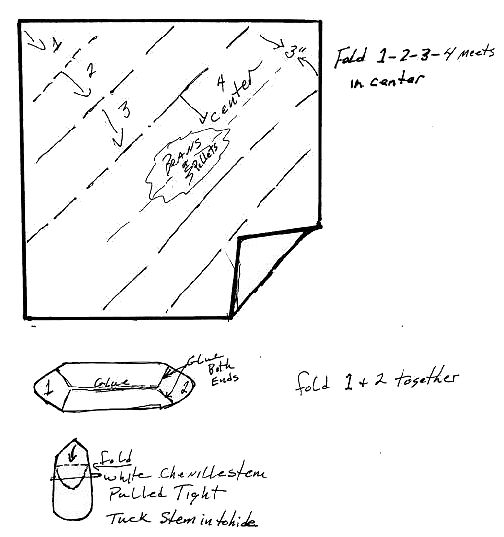 1
2
3
4
center
3"
Fold 1-2-3-4 meets
in center
BEANS
&
5 Pullets
1
Glue
2
Glue
Both
Ends
fold 1 + 2 together
fold
white Chenille stem
Pulled Tight
Tuck Stem in to hide